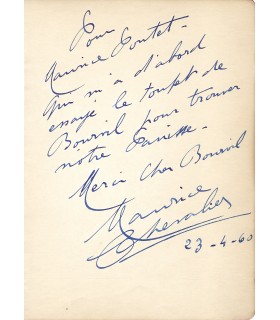 Pour
Maurice Poutet -
qui m'a d'abord
essayé le toupet de
Bourvil pour trouver
notre
Merci Cher Bourvil
Maurice
Chevalier
23-4-60